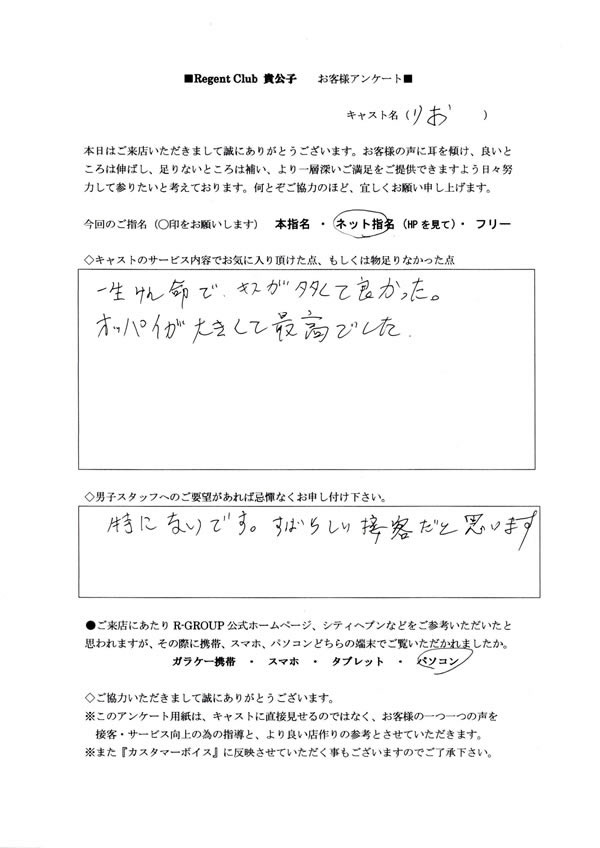 ■Regent Club 貴公子 お客様アンケート■
キャスト名（りお ）
本日はご来店いただきまして誠にありがとうございます。お客様の声に耳を傾け、良いと
ころは伸ばし、足りないところは補い、より一層深いご満足をご提供できますよう日々努
力して参りたいと考えております。何とぞご協力のほど、宜しくお願い申し上げます。
今回のご指名（〇印をお願いします） 本指名 ・ ネット指名（HPを見て）・ フリー
◇キャストのサービス内容でお気に入り頂けた点、もしくは物足りなかった点
一生けん命で、キスが多くて良かった。
オッパイが大きくて最高でした.
◇男子スタッフへのご要望があれば忌憚なくお申し付け下さい。
特にないです。すばらしい接客だと思います
●ご来店にあたり R-GROUP 公式ホームページ、シティヘブンなどをご参考いただいたと
思われますが、その際に携帯、スマホ、パソコンどちらの端末でご覧いただかれましたか。
ガラケー携帯 ・ スマホ ・ タブレット ・ パソコン
◇ご協力いただきまして誠にありがとうございます。
※このアンケート用紙は、キャストに直接見せるのではなく、お客様の一つ一つの声を
接客・サービス向上の為の指導と、より良い店作りの参考とさせていただきます。
※また『カスタマーボイス』に反映させていただく事もございますのでご了承下さい。